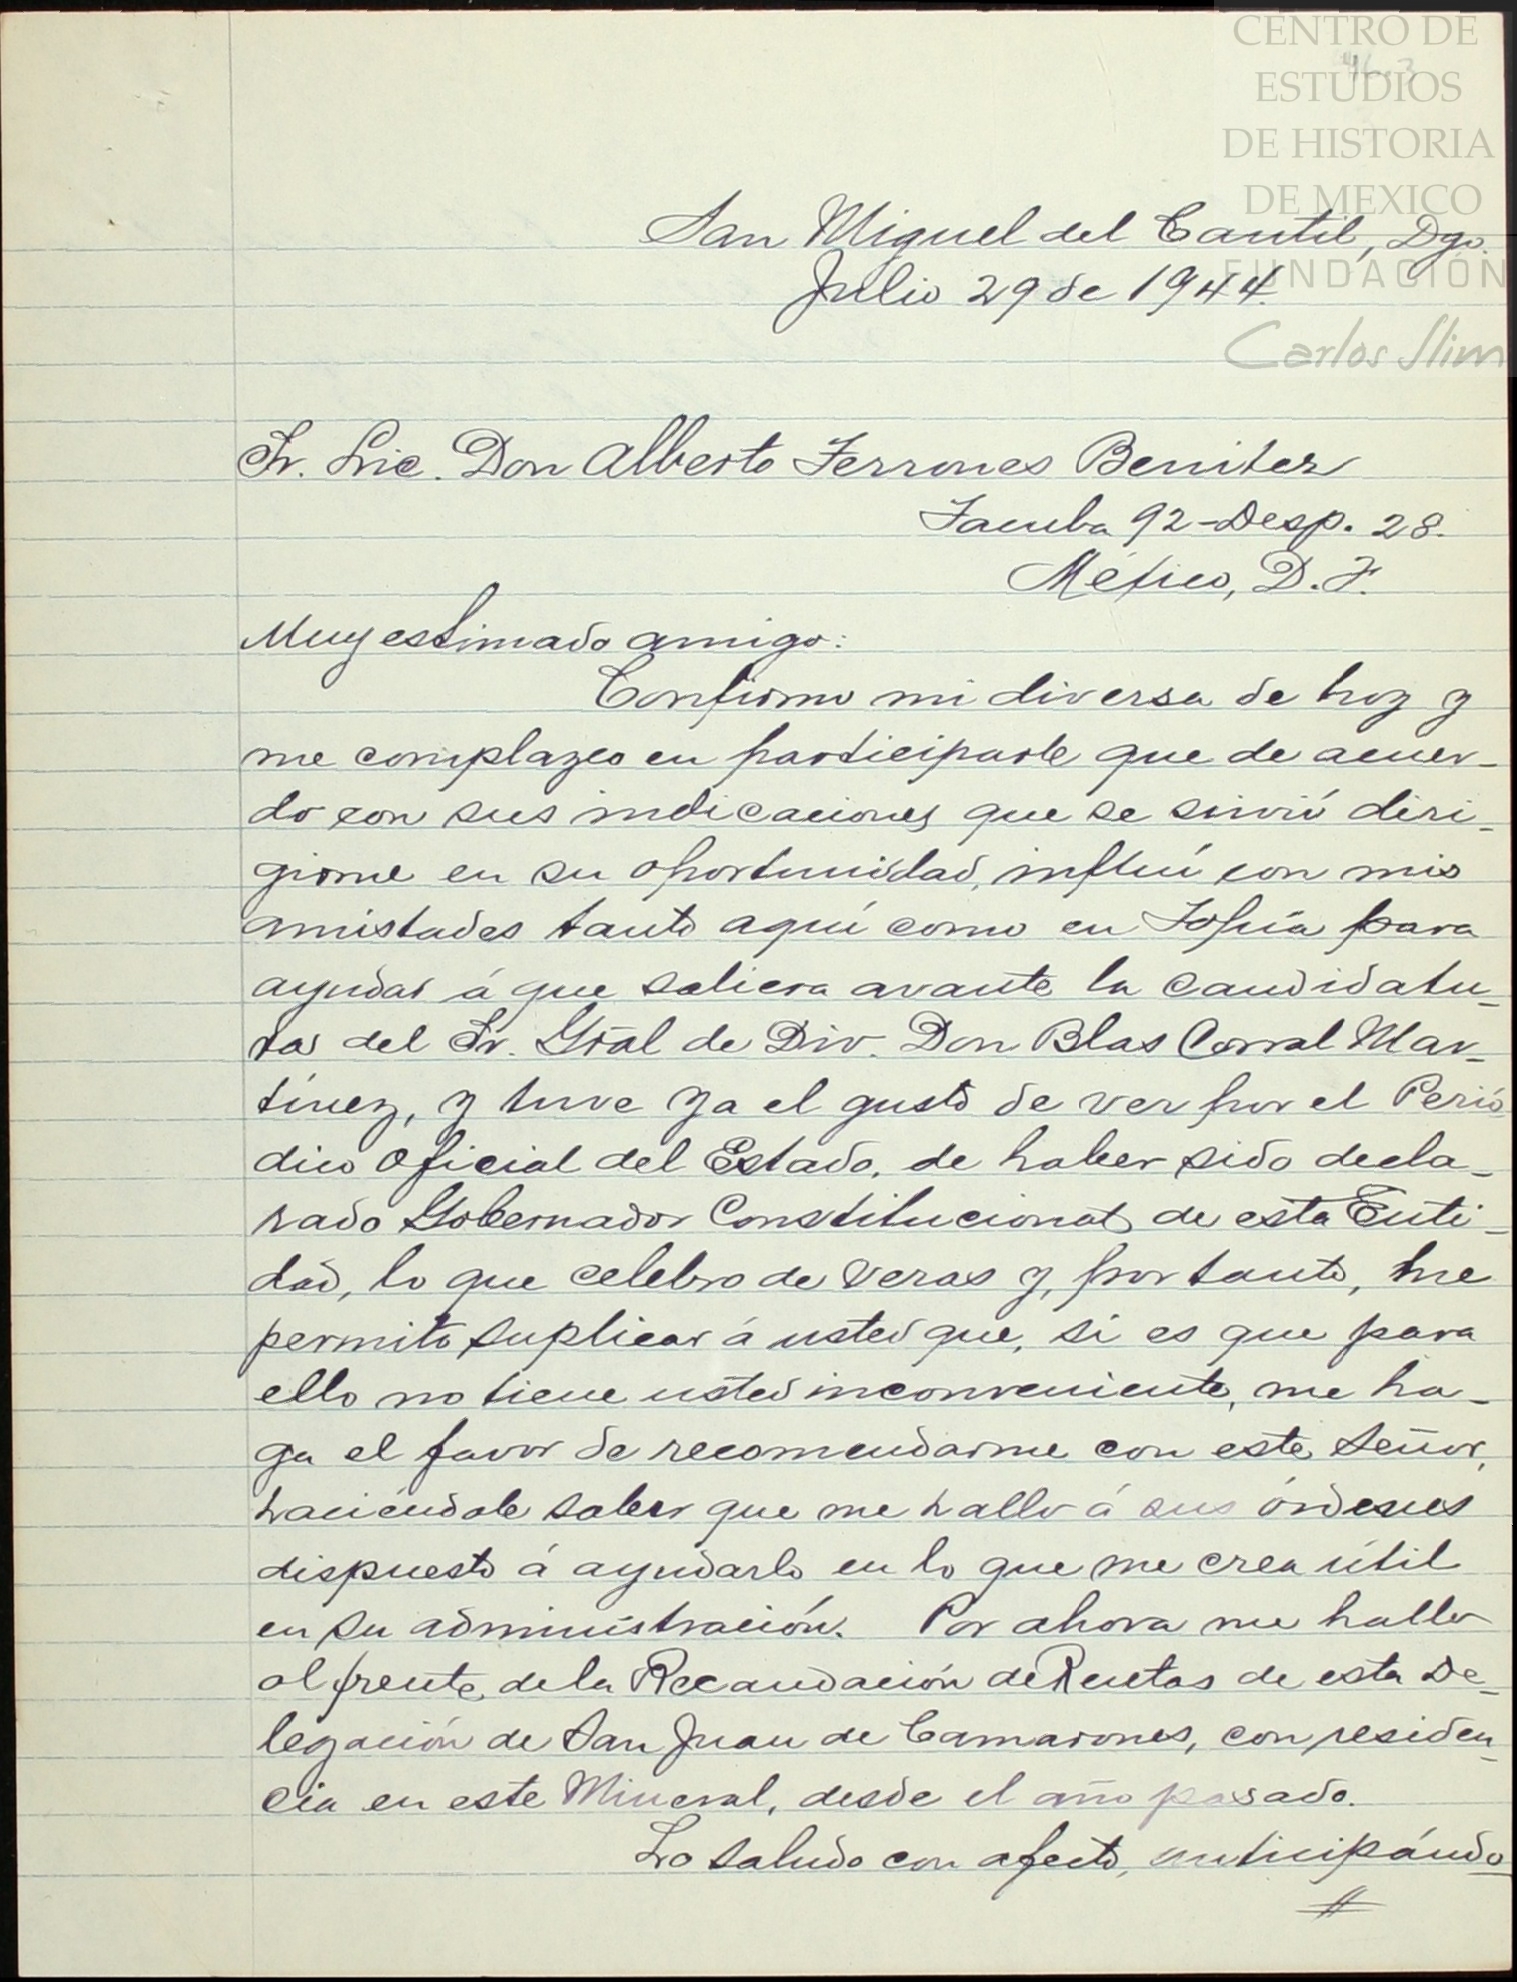 CENTRO DE
ESTUDIOS
DE HISTORIA
DE MEXICO
FUNDACIÓN
Carlos Slim
San Miguel del Cantil, Dgo.
Julio 29 de 1944.
Sr. Lic. Don Alberto Terrones Benitez
Tacuba 92-Desp. 28.
México, D.F.
Muy estimado amigo:
Confirmo mi diversa de hoy y
me complazco en participarle que de acuer-
do con sus indicaciones que se sirvió diri-
girme en su oportunidad, influí con mis
amistades tanto aquí como en Topia para
ayudar á que saliera avante la candidatu-
ra del Sr. Gral de Div. Don Blas Corral Mar-
tínez, y tuve ya el gusto de ver por el Perió
dico Oficial del Estado, de haber sido decla-
rado Gobernador Constitucional de esta Enti-
dad, lo que celebro de veras y, por tanto, me
permito suplicar á usted que, si es que para
ello no tiene usted inconveniente, me ha-
ga el favor de recomendarme con este Señor,
haciéndole saber que me hallo á sus órdenes
dispuesto á ayudarlo en lo que me crea útil
en su administración. Por ahora me hallo
al frente de la Recaudación de Rentas de esta De-
legación de San Juan de Camarones, con residen-
cia en este Mineral, desde el año pasado.
Lo saludo con afecto, anticipándo